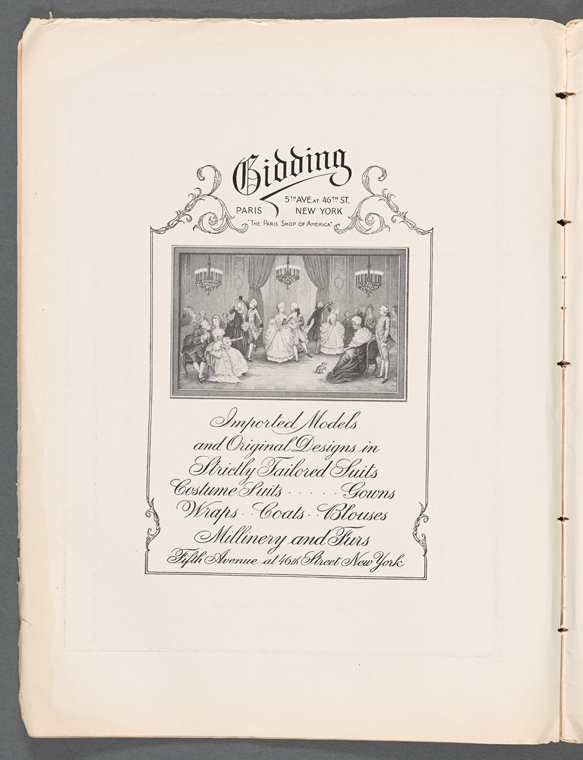 Gidding
5TH AVE. AT 46TH ST.
PARIS NEW YORK
"THE PARIS SHOP OF AMERICA"
Imported Models
and Original Designs in
Strictly Tailored Suits
Costume Suits . . . . . Gowns
Wraps . . Coats . . Blouses
Millinery and Furs
Fifth Avenue at 46th Street New York